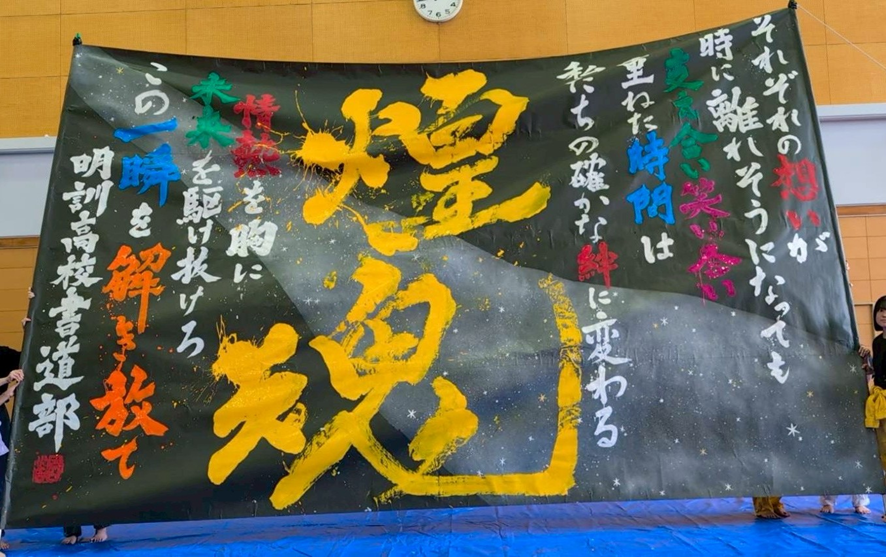 それぞれの想いが
時に離れそうになっても
支え合い笑い合い
重ねた時間は
私たちの確かな絆に変わる
煌
魂
情熱を胸に
未来を駆け抜けろ
この一瞬を解き放て
明訓高校書道部